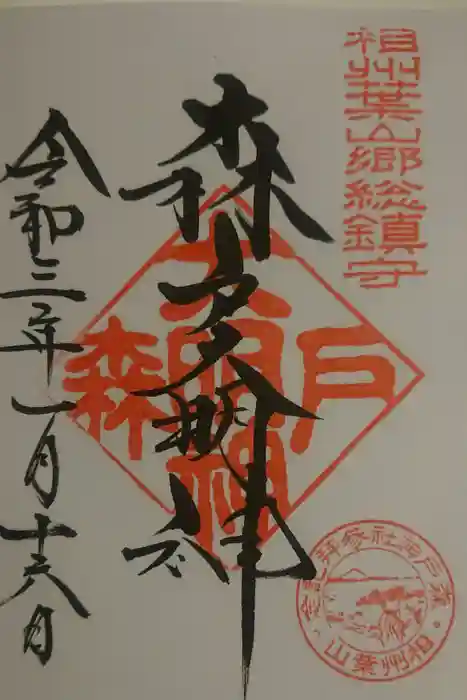 相州葉山郷総鎮守
森戸大明神
戸大明神森
令和三年一月十六日
森戸神社参拝記念
相州葉山